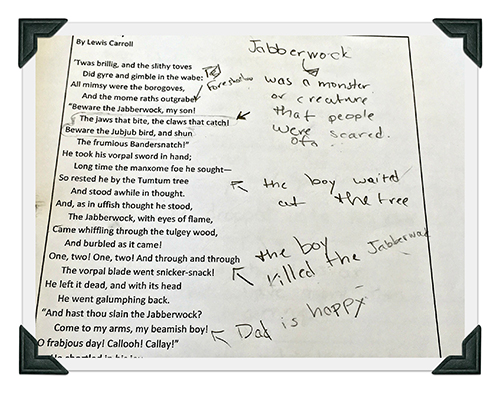 By Lewis Carroll
'Twas brillig, and the slithy toves
Did gyre and gimble in the wabe:
All mimsy were the borogoves,
And the mome raths outgrabe.
"Beware the Jabberwock, my son!
The Jaws that bite, the claws that catch!
Beware the Jubjub bird, and shun
The frumious Bandersnatch!"
He took his vorpal sword in hand;
Long time the manxome foe he sought—
So rested he by the Tumtum tree
And stood awhile in thought.
And, as in uffish thought he stood,
The Jabberwock, with eyes of flame,
Came whiffling through the tulgey wood,
And burbled as it came!
One, two! One, two! And through and through
The vorpal blade went snicker-snack!
He left it dead, and with its head
He went galumphing back.
"And hast thou slain the Jabberwock?
Come to my arms, my beamish boy!
O frabjous day! Callooh! Callay!"
Jabberwock
Foreshadow
was a monster
or creature
that people
were scared
of.
the boy waited
at the tree
the boy
killed the Jabberwock
Dad is happy